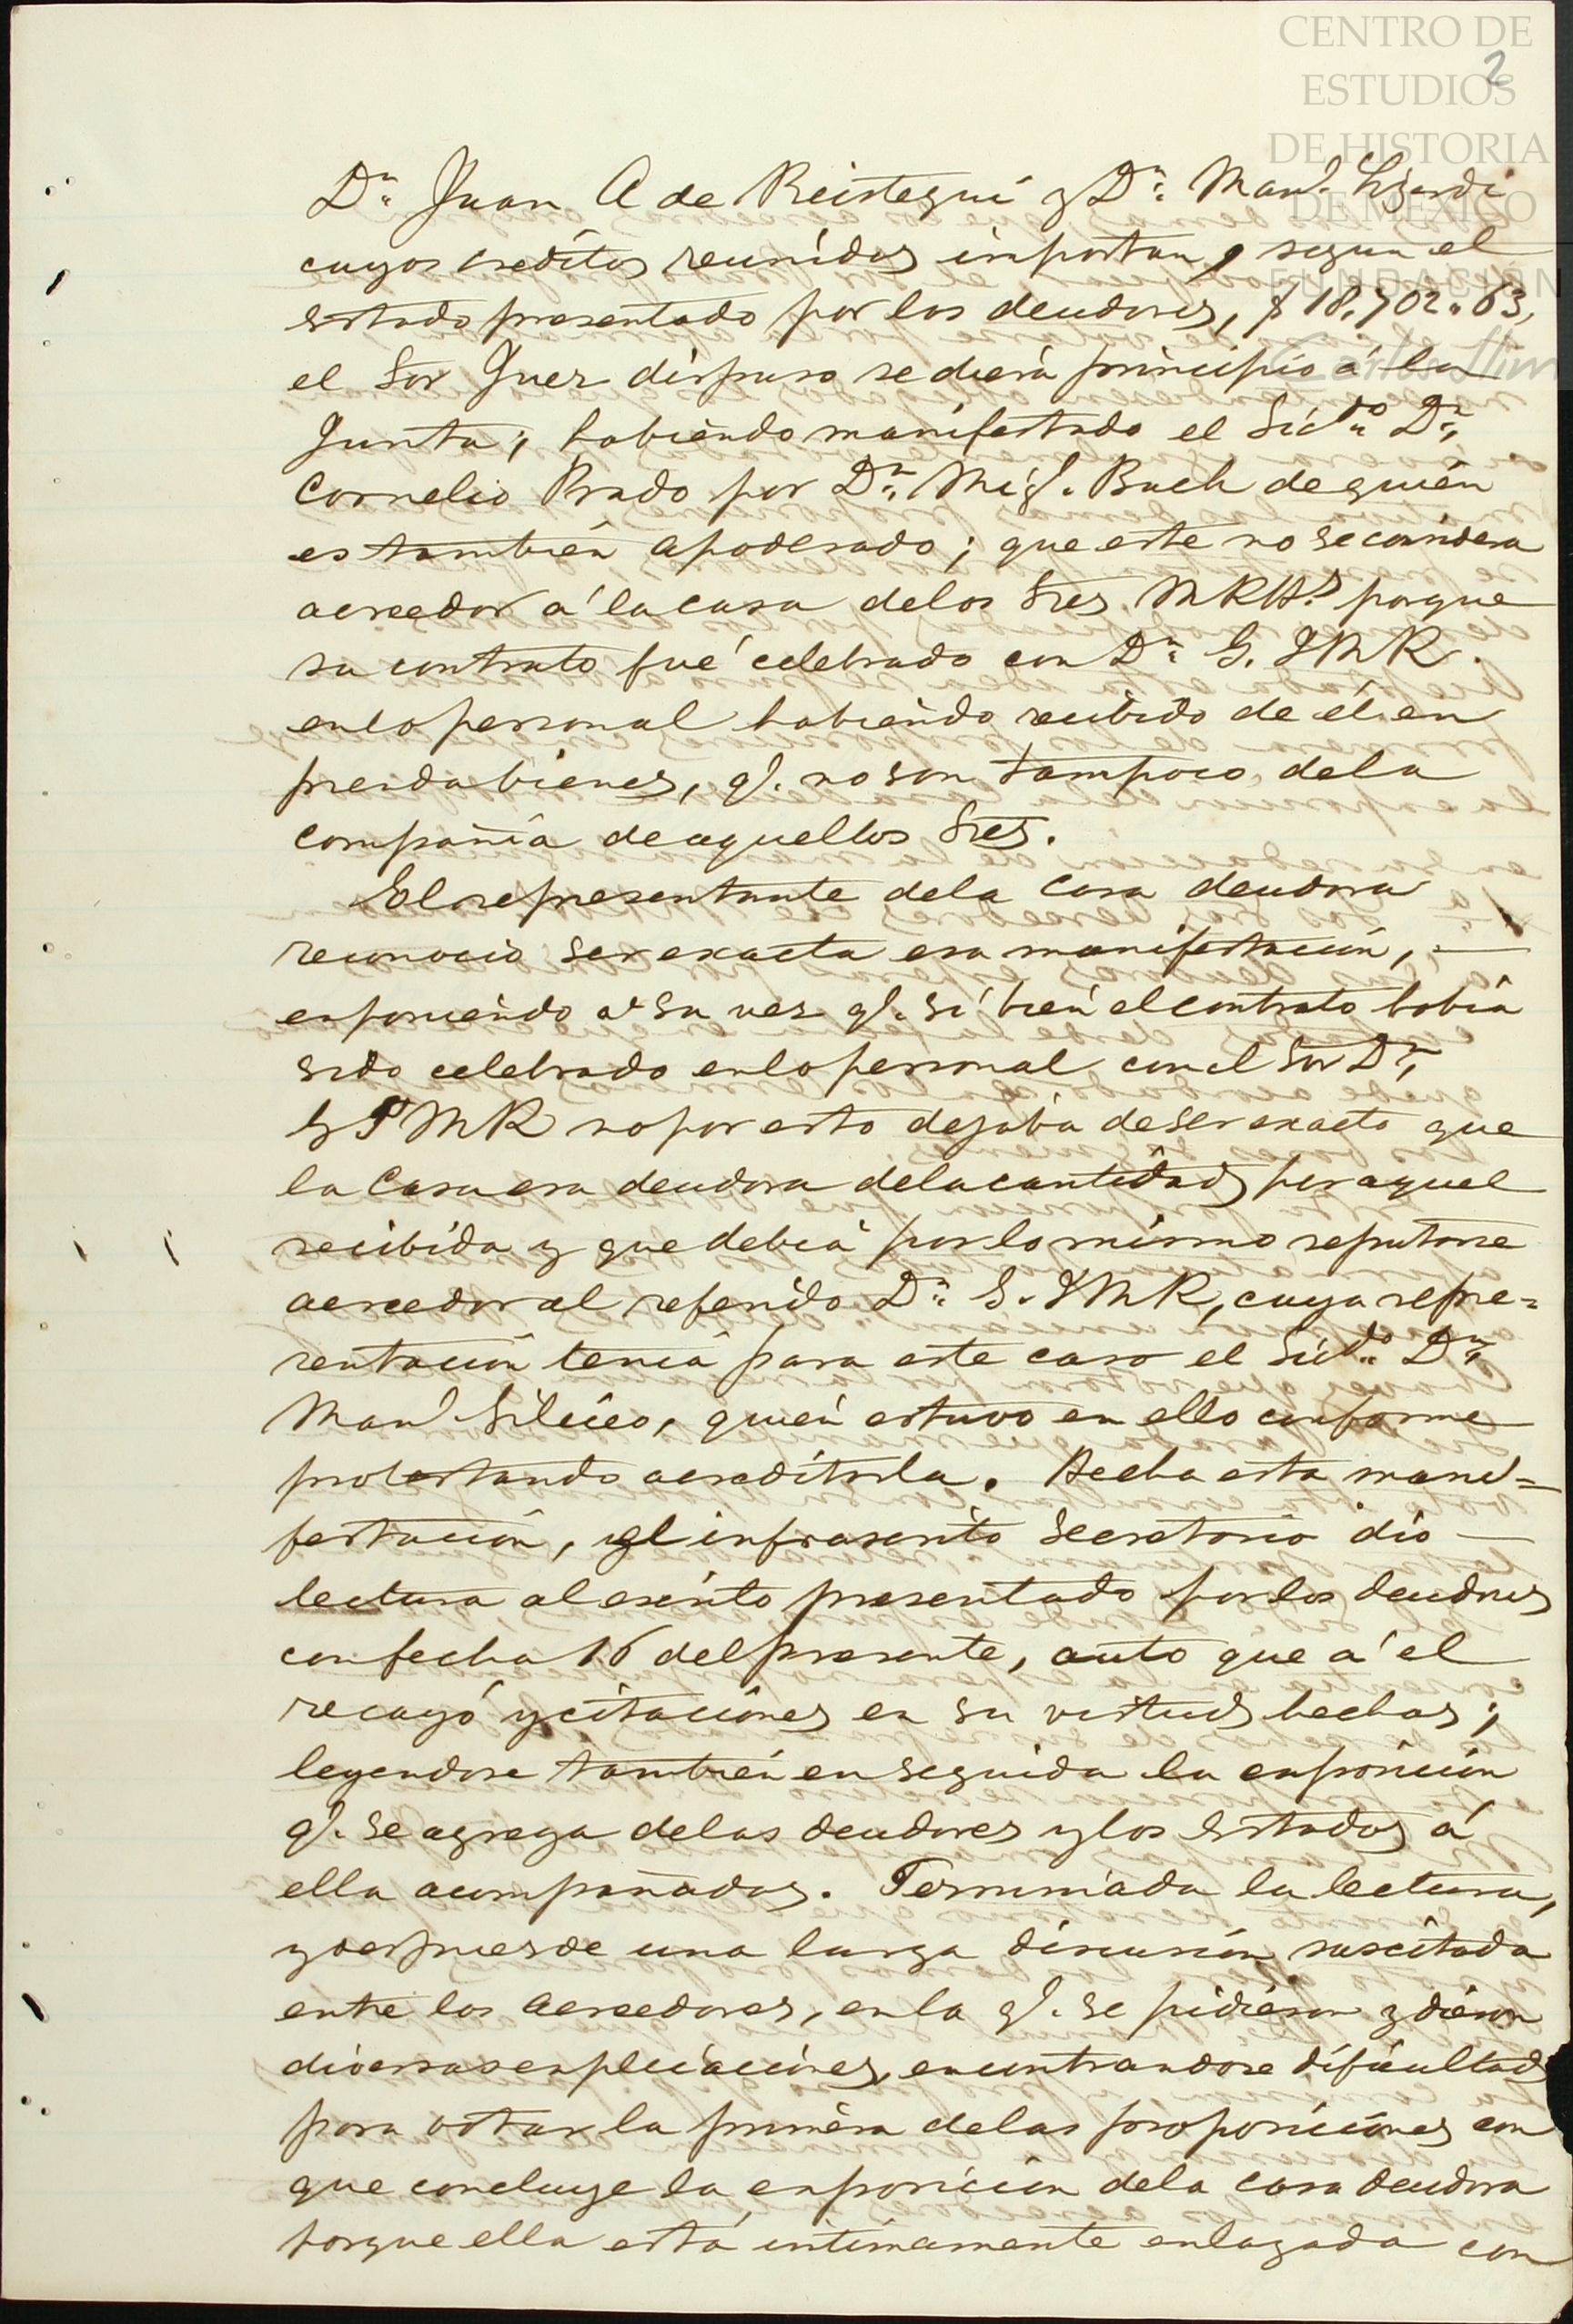 CENTRO DE
ESTUDIOS
DE HISTORIA
DE MÉXICO
FUNDACIÓN
Carlos Slim
2
Dn. Juan A de Beistegui y Dn. Manl. Lizardi
cuyos creditos reunidos importan, segun el
estado presentado por los deudores, $18,702.63,
el Sor Juez dispuso se diera principio á la
Junta; habiendo manifestado el Licdo. Dn.
Cornelio Prado por Dn. Migl. Buch de quién
es también apoderado; que este no se considera
acreedor á la casa de los Sres. MRHs. porque
su contrato fué celebrado con Dn. G. MR.
en lo personal habiendo recibido de él en
prenda bienes, ql. no son tampoco de la
compañia de aquellos Sres.
El representante de la Casa deudora
reconocio ser exacta esa manifestación,
exponiendo a su vez ql. si bien el contrato habia
sido celebrado en lo personal con el Sor Dn.
G MR no por esto dejaba de ser exacto que
la Casa era deudora de la cantidad por aquel
recibida y que debia por lo mismo reputarse
acreedor al referido Dn. G. MR, cuya repre=
sentación tenia para este caso el Licdo. Dn.
Manl. Siliceo, quien estuvo en ello conforme
protestando acreditarla. Hecha esta mani=
festación, el infrascrito Secretario dio
lectura al escrito presentado por los deudores
con fecha 16 del presente, auto que á el
recayó y citaciones en su virtud hechas;
leyendose también en seguida la exposición
ql. se agrega de los deudores y los estados á
ella acompañados. Terminada la lectura,
y despues de una larga discusión suscitada
entre los acreedores, en la ql. se pidieron y dieron
diversas explicaciones, encontrandose dificultad
para votar la primera de las proposiciones con
que concluye la exposicion de la casa deudora
porque ella está intimamente enlazada con